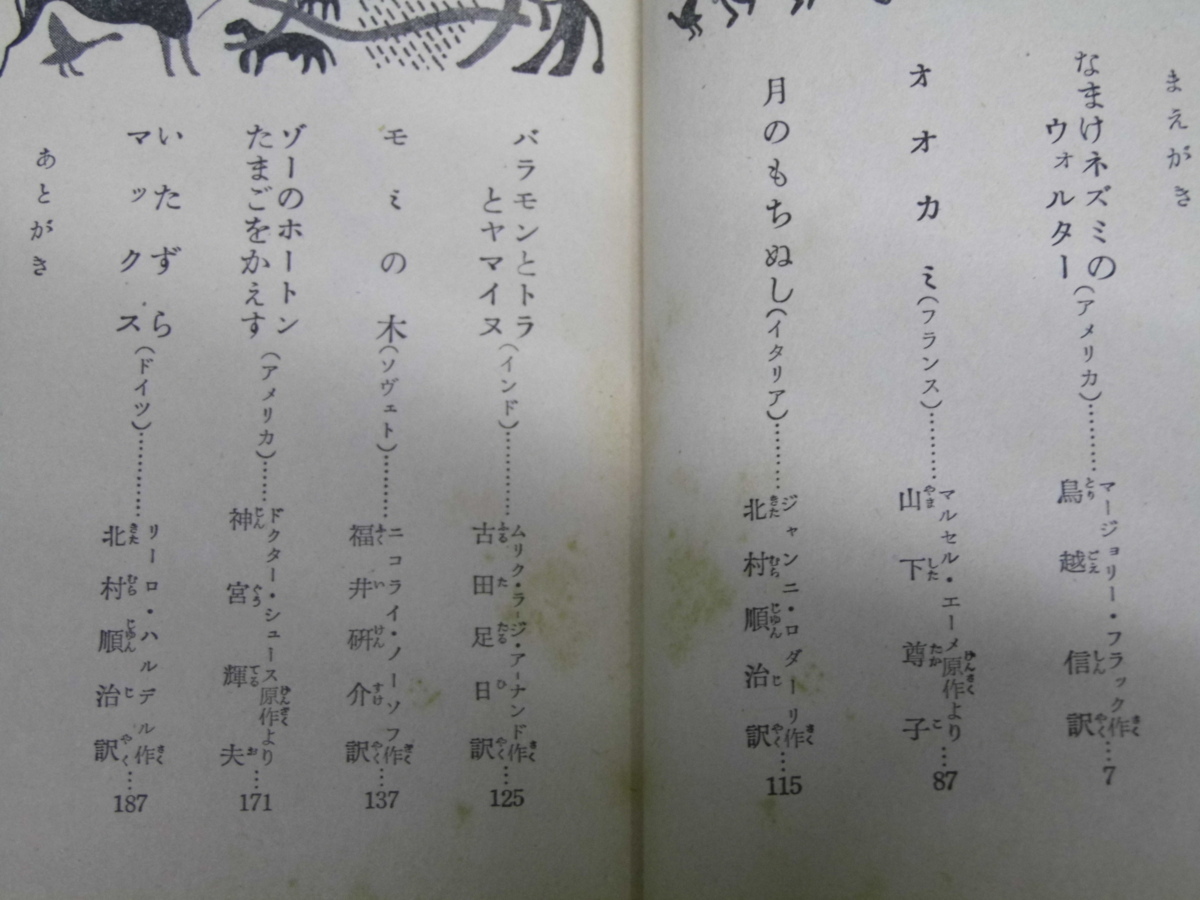 まえがき
なまけネズミの
ウォルター(アメリカ)………
マージョリー・フラック作
鳥越信訳…7
オオカミ(フランス)………
マルセル・エーメ原作より
山下尊子…87
月のもちぬし(イタリア)………
ジャンニ・ロダーリ作
北村順治訳…115
バラモンとトラ
とヤマイヌ(インド)………
ムリク・ラージ・アーナンド作
古田足日訳…125
モミの木(ソヴェト)………
ニコライ・ノーソフ作
福井研介訳…137
ゾーのホートン
たまごをかえす(アメリカ)……
ドクター・シュース原作より
神宮輝夫…171
いたずら
マックス(ドイツ)………
リーロ・ハルデル作
北村順治訳…187
あとがき